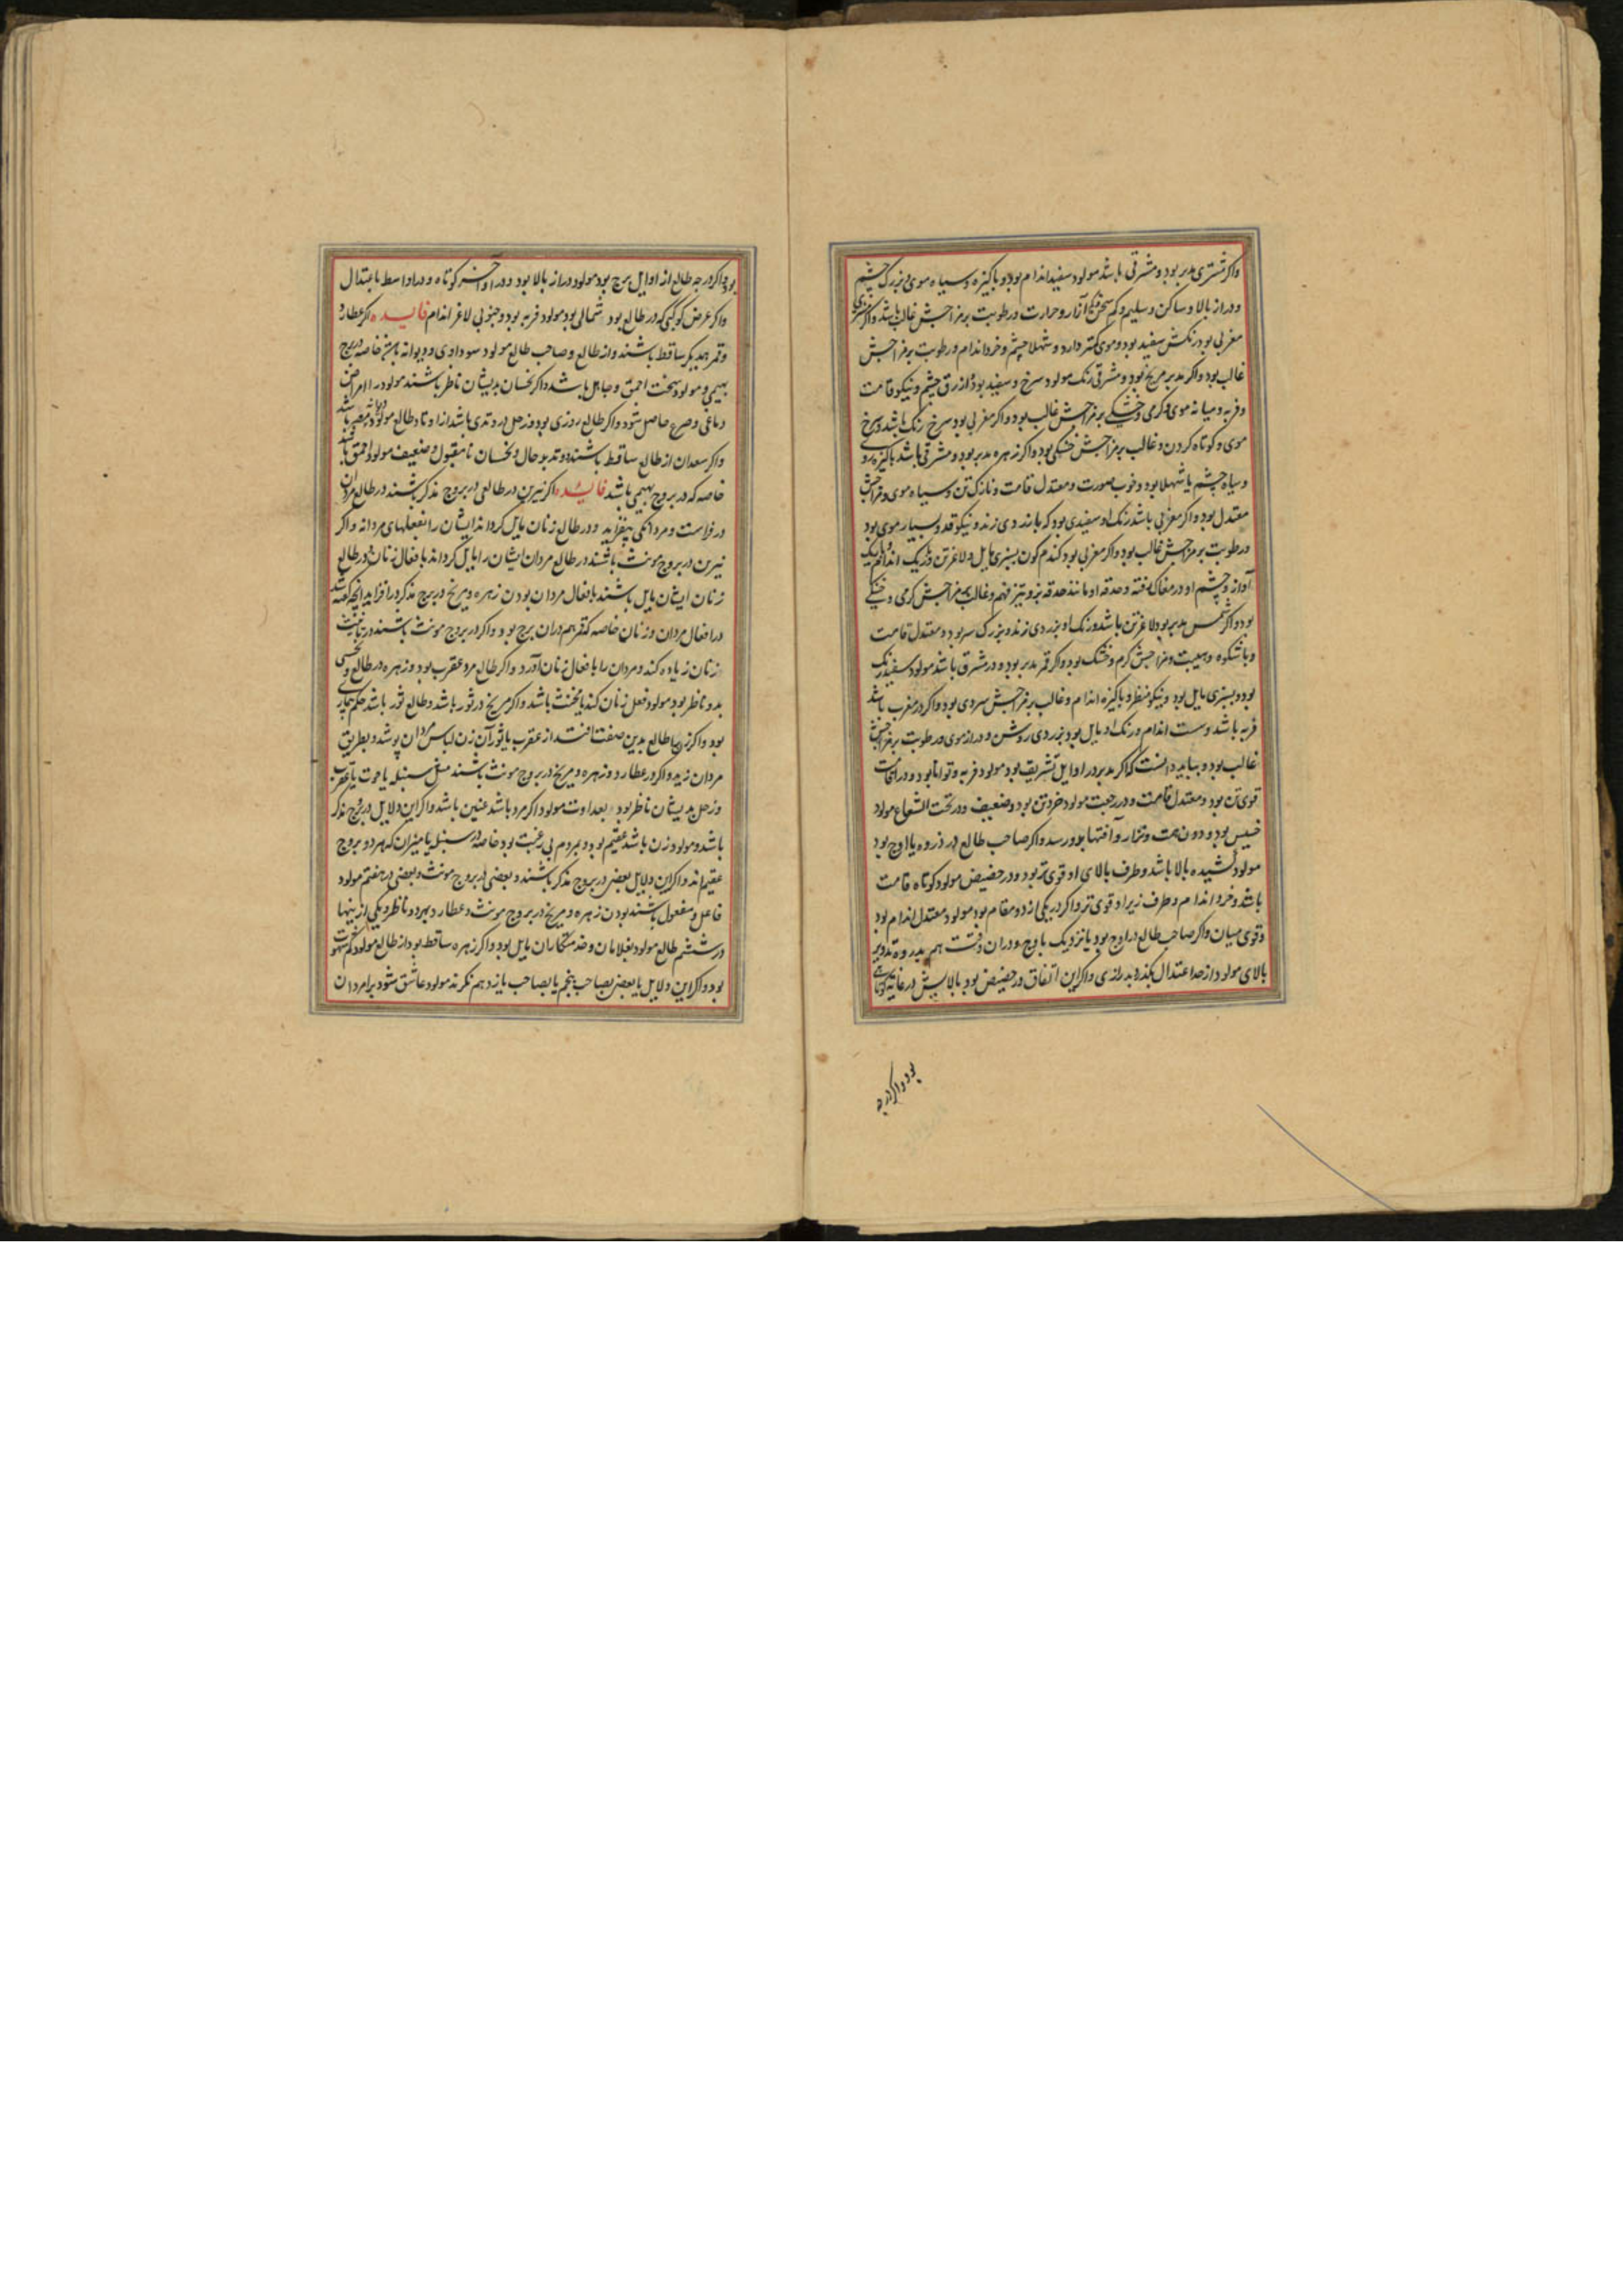 واکر مشتری مدبر بود و مشرقی باشد مولود سفید اندام بود و پاکیزه و سیاه موی و بزرک چشم
و دراز بالا و ساکن و سلیم و کم سخن و حرارت و رطوبت بر مزاجش غالب باشد واکر مشتری
مغربی بود رنکش سفید بود و موی کمتر دارد و شهلا چشم و خرد اندام و رطوبت بر مزاجش
غالب بود واکر مدبر مریخ بود و مشرقی رنک مولود سرخ و سفید بود و ازرق چشم و نیکو قامت
و فربه و میانه موی و کرمی و خشکی بر مزاجش غالب بود واکر مغربی بود سرخ رنک باشد و سرخ
موی و کوتاه کردن و غالب بر مزاجش خشکی بود واکر زهره مدبر بود و مشرقی باشد پاکیزه روی
و سیاه چشم یا شهلا بود و خوب صورت و معتدل قامت و نازک تن و سیاه موی و مزاجش
معتدل بود واکر مغربی باشد رنک او سفیدی بود که بازردی زند و نیکو قد و بسیار موی بود
و رطوبت بر مزاجش غالب بود واکر مغربی بود کندم کون بسبزی مایل و لاغر تن و باریک اندام
آواز و چشم او در مغاک رفته و حدقه او مانند حدقه بز و تیز فهم و غالب بر مزاجش کرمی و خشکی
بود واکر شمس مدبر بود لاغر تن باشد و رنک او بزردی زند و بزرک سر بود و معتدل قامت
و با شکوه و هیبت و مزاجش کرم و خشک بود واکر قمر مدبر بود و در مشرق باشد مولود سفید رنک
بود و بسبزی مایل بود و نیکو منظر و پاکیزه اندام و غالب بر مزاجش سردی بود واکر در مغرب باشد
فربه باشد و سست اندام و رنک او مایل بود بزردی روشن و دراز موی و رطوبت بر مزاجش
غالب بود و بباید دانست که اکر مدبر در اوایل تشریق بود مولود فربه و توانا بود و در اقامت
قوی تن بود و معتدل قامت و در رجعت مولود خرد تن بود و ضعیف و در تحت الشعاع مولود
خسیس بود و دون همت و نزار و آفتها بدو رسد واکر صاحب طالع در ذروه یا اوج بود
مولود کشیده بالا باشد و طرف بالای او قوی تر بود و در حضیض مولود کوتاه قامت
باشد و خرد اندام و طرف زیر او قوی تر واکر در یکی از دو مقام بود مولود معتدل اندام بود
و قوی میان واکر صاحب طالع در اوج بود یا نزدیک باوج و در آن وقت هم بذروه تدویر
بالای مولود از حد اعتدال بکذرد بدرازی واکر این اتفاق در حضیض بود بالایش در غایة کوتاهی
بود واکر درجه
بود واکر درجه طالع از اوایل برج بود مولود دراز بالا بود و در اواخر کوتاه و در اواسط باعتدال
واکر عرض کوکبی که در طالع بود شمالی بود مولود فربه بود و جنوبی لاغر اندام فایده اکر عطارد
و قمر از یکدیکر ساقط باشند و از طالع و صاحب طالع مولود سوداوی و دیوانه باشد خاصه در برج
بهیمی و مولود سخت احمق و جاهل باشد واکر نحسان بدیشان ناظر باشند مولود را امراض
دماغی و صرع حاصل شود واکر طالع روزی بود و زحل در وتدی باشد از اوتاد طالع مولود مصروع باشد
واکر سعدان از طالع ساقط باشند و تدبد حال و نحسان نامقبول و ضعیف مولود احمق باشد
خاصه که در بروج بهیمی باشد فایده اکر نیرین در طالعی در بروج مذکر باشند در طالع مردان
در فراست و مردانکی بیفزاید و در طالع زنان مایل کرداند ایشان را بفعلهای مردانه واکر
نیرین در بروج مونث باشند در طالع مردان ایشان را مایل کرداند بافعال زنان و در طالع
زنان ایشان مایل باشند بافعال مردان بودن زهره و مریخ در برج مذکر در افزاید آنچه کفته شد
در افعال مردان و زنان خاصه که قمر هم در آن برج بود واکر در بروج مونث باشند در تانیث
زنان زیاده کند و مردان را بافعال زنان آورد واکر طالع مرد عقرب بود و زهره در طالع و نحسی
بدو ناظر بود مولود فعل زنان کند یا مخنث باشد واکر مریخ در ثور باشد و طالع ثور باشد حکم همچنین
بود واکر زن را طالع بدین صفت افتد از عقرب یا ثور آن زن لباس مردان پوشد و بطریق
مردان زید واکر عطارد و زهره و مریخ در بروج مونث باشند مثل سنبله یا حوت یا عقرب
و زحل بدیشان ناظر بود بعداوت مولود اکر مرد باشد عنین باشد واکر این دلایل در بروج مذکر
باشد و مولود زن باشد عقیم بود و بمردم بی رغبت بود خاصه در سنبله یا میزان که هر دو بروج
عقیم اند واکر این دلایل بعضی در بروج مذکر باشند و بعضی در بروج مونث و بعضی در هفتم مولود
فاعل و مفعول باشند بودن زهره و مریخ در بروج مونث و عطارد بهر دو ناظر و یکی از اینها
در ششم طالع مولود بغلامان و خدمتکاران مایل بود واکر زهره ساقط بود از طالع مولود کم شهوت
بود واکر این دلایل یا بعضی بصاحب پنجم یا بصاحب یازدهم نکرند مولود عاشق شود بر امردان